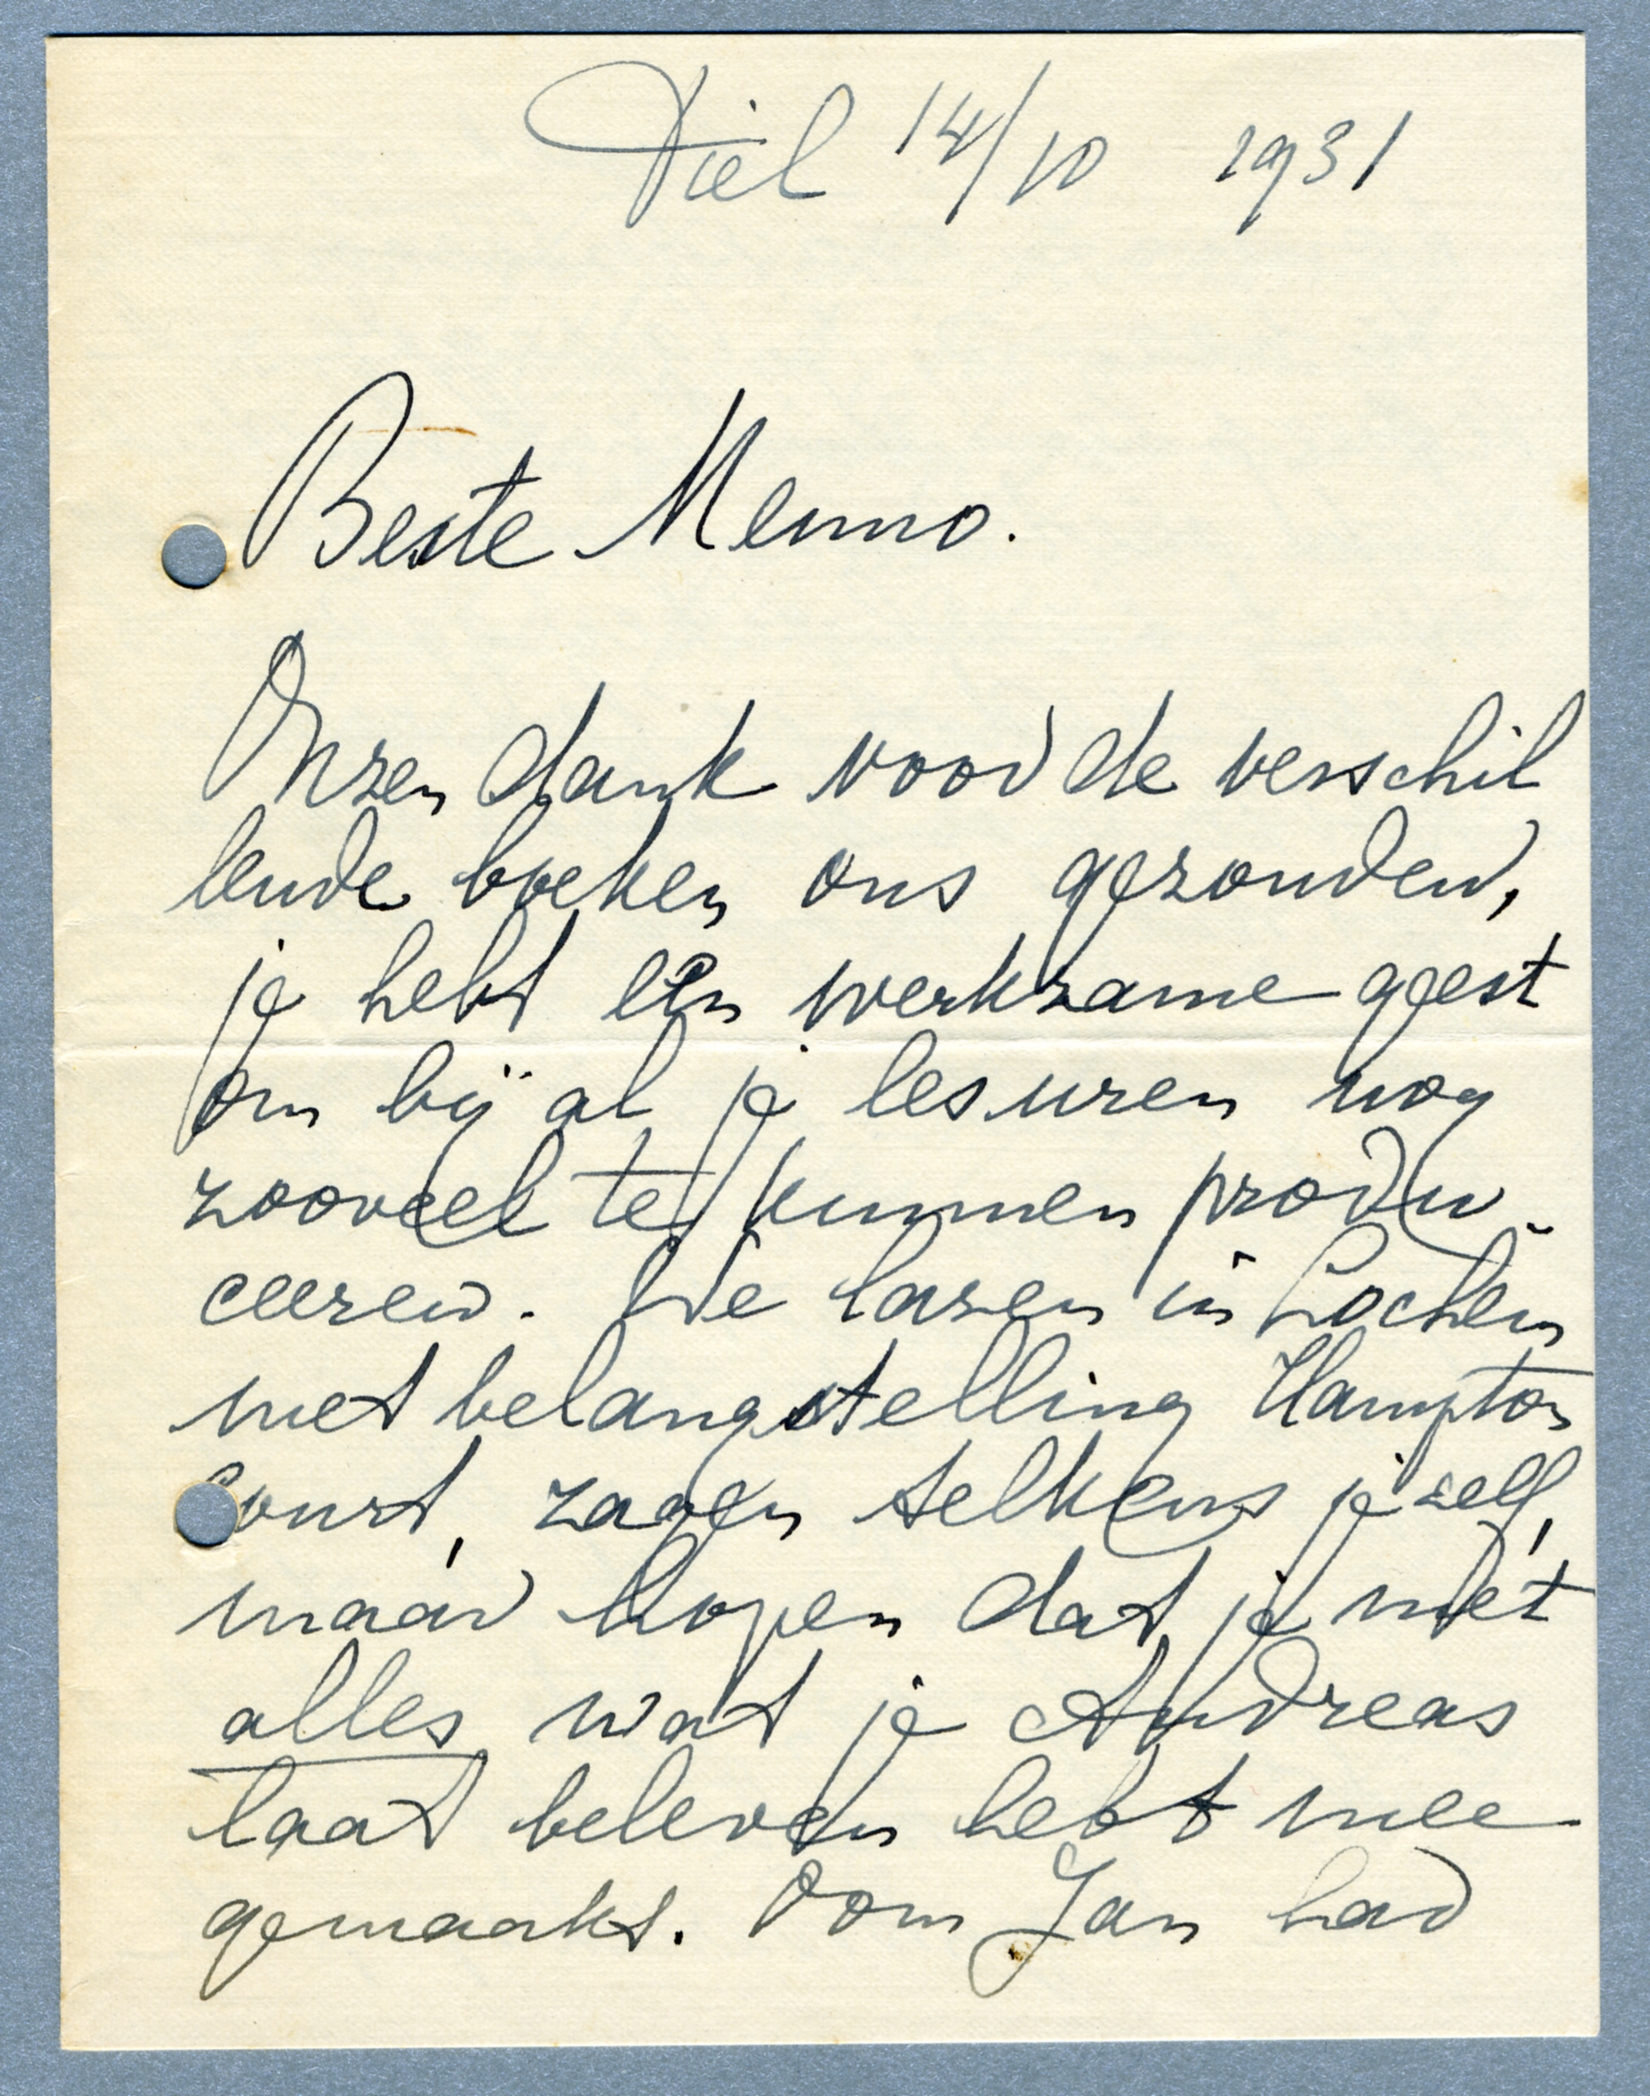 Tiel 14/10 1931
Beste Menno.
Onzen dank voor de verschil
lende boeken ons gezonden,
je hebt een werkzame geest
om bij al je lesuren nog
zooveel te kunnen produ-
ceeren. We lazen in Lochem
met belangstelling Hampton
Court, zagen telkens je zelf,
maar hopen dat je niet
alles wat je Andreas
laat beleven hebt mee-
gemaakt. Oom Jan had